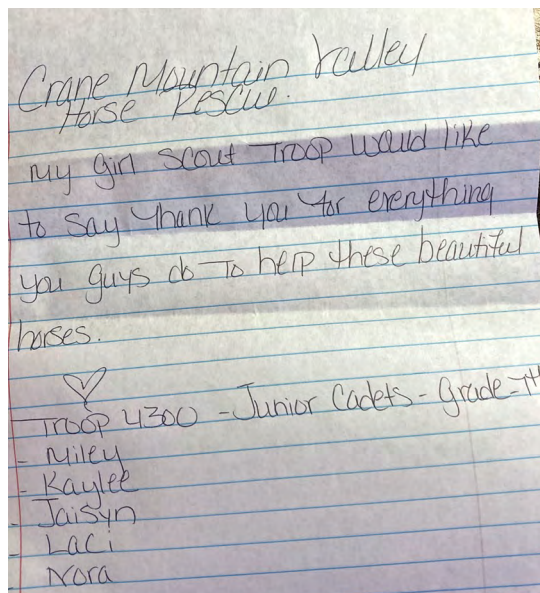 Crane Mountain Valley
Horse Rescue.
My girl scout Troop would like
to say thank you for everything
you guys do To help these beautiful
horses.
Troop 4300 - Junior Cadets - Grade-7th
- Miley
- Kaylee
- Jaisyn
- Laci
Nora